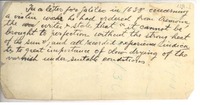 In a letter to Galileo in 1638 concerning
a violin which he had ordered from Cremona,
the writer states that "it cannot be
brought to perfection without the strong heat
of the sun", and
to great importance of slow drying of the
varnish under suitable conditions.